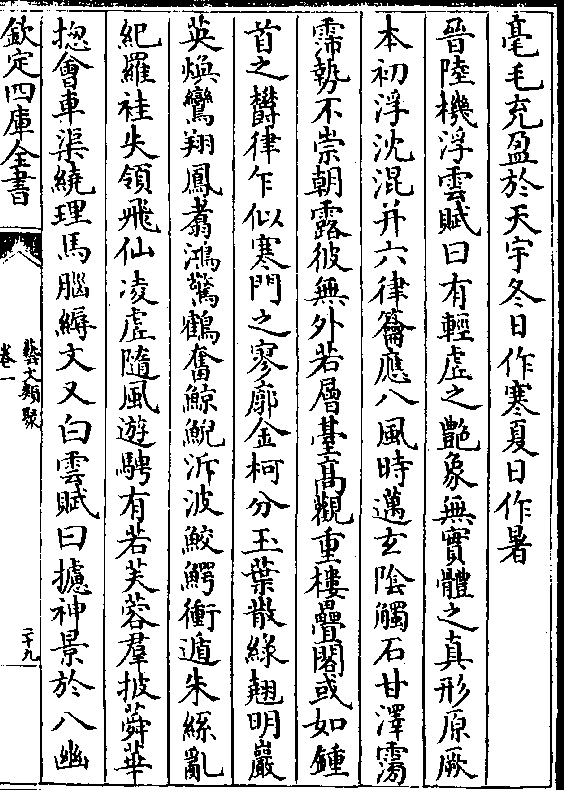 毫毛充盈於天宇冬日作寒夏日作暑
晉陸機浮雲賦曰有輕虛之艷象無實體之真形原厥
本初浮沈混并六律籥應八風時邁玄陰觸石甘澤霶
霈勢不崇朝露彼無外若層臺高觀重樓疊閣或如鍾
首之欝律乍似寒門之寥廓金柯分玉葉散綠翹明巖
英煥鸞翔鳳翥鴻驚鶴奮鯨鯢泝波鮫鰐衝遁朱絲亂
紀羅袿失領飛仙凌虛隨風遊騁有若芙蓉羣披蕣華
揔會車渠繞理馬腦縟文又白雲賦曰攄神景於八幽
欽定四庫全書
藝文類聚
卷一
二十九